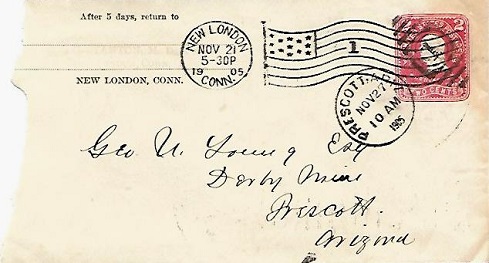 After 5 days, return to
NEW LONDON, CONN.
NEW LONDON
NOV 21
5-30P
1905
CONN.
1
2
TWO CENTS
PRESCOTT,
NOV 27
10 AM
1905
Geo U. Young Esq
Derby Mine
Prescott.
Arizona